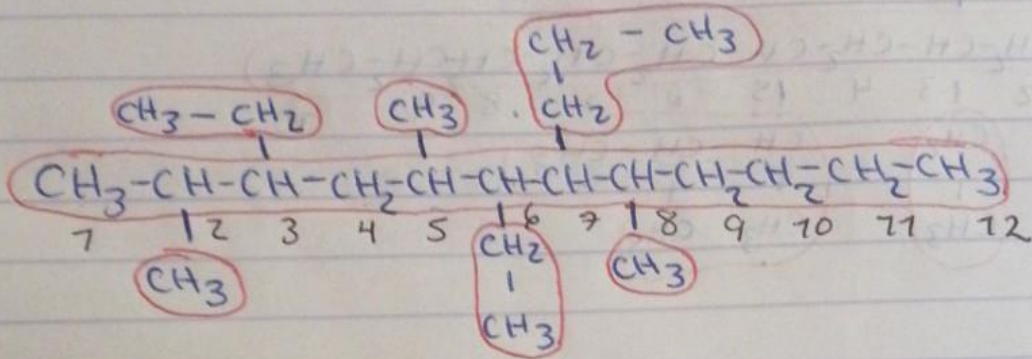 CH2 - CH3
CH3 - CH2 CH3 CH2
CH3-CH-CH-CH2-CH-CH-CH-CH-CH2-CH2-CH2-CH3
1 2 3 4 5 6 7 8 9 10 11 12
CH3 CH2 CH3
CH3